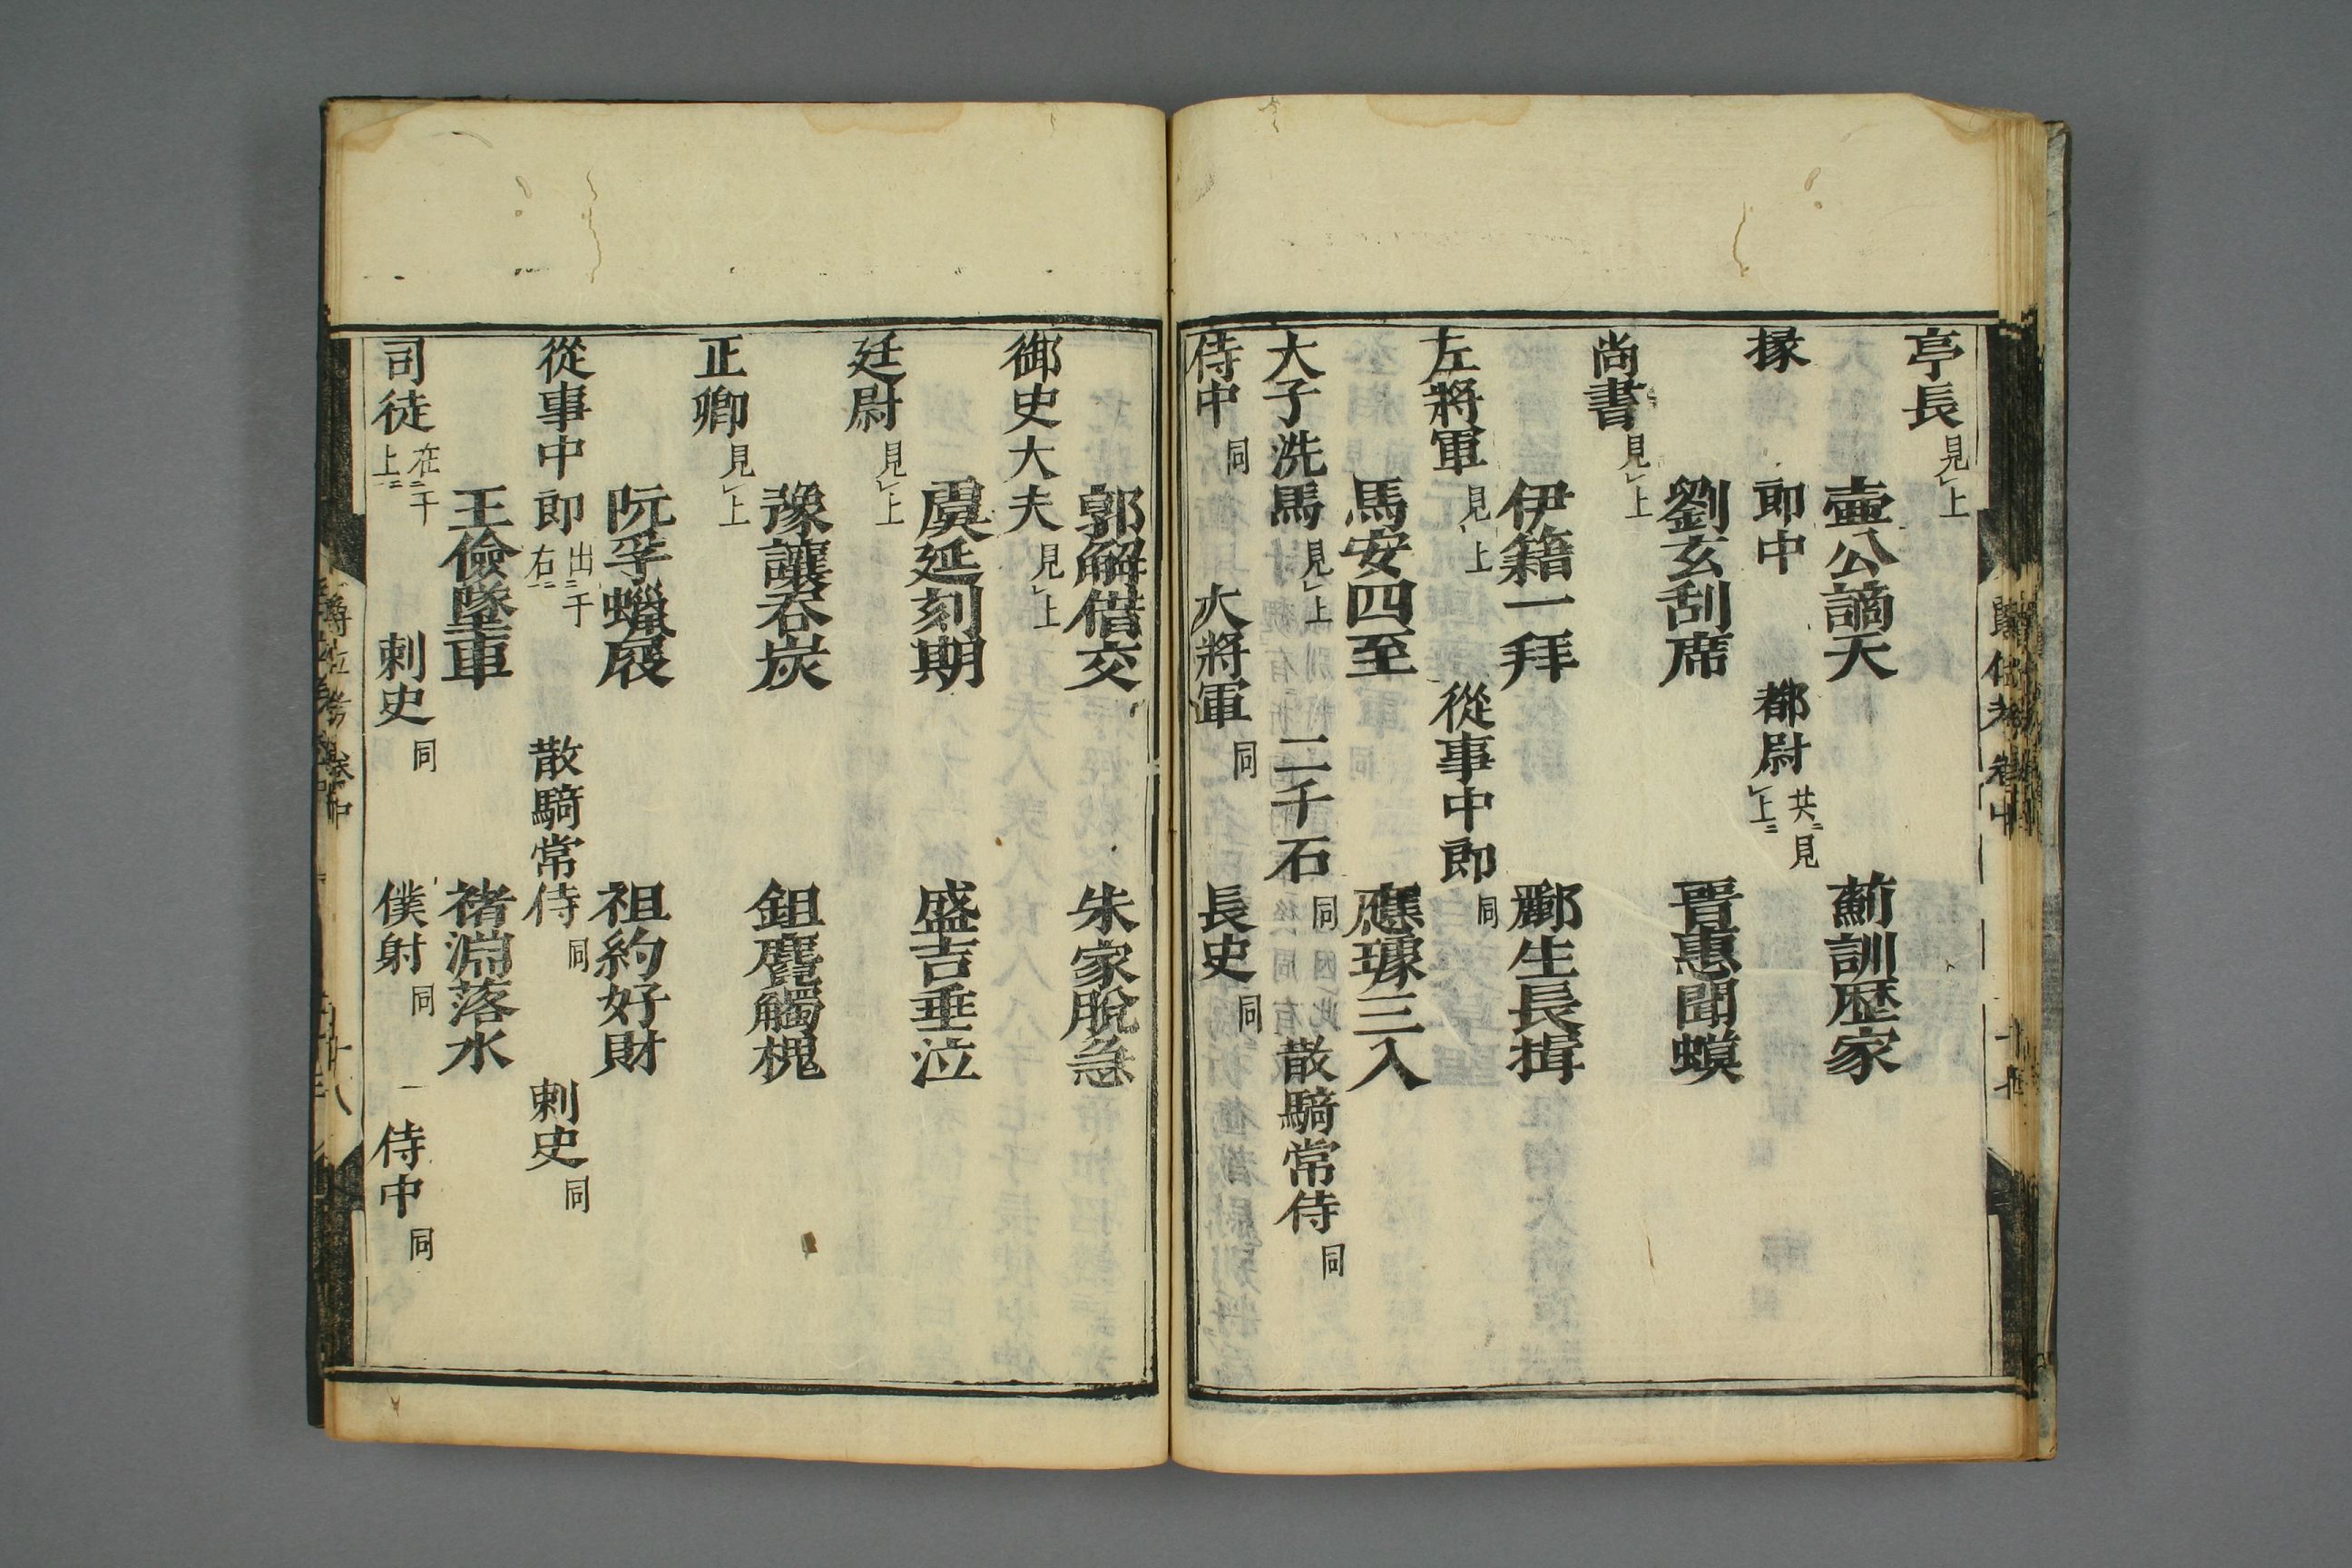 亭長見上
壷公謫天　薊訓歴家
掾　郎中　都尉共見上
劉玄刮席　晋惠聞蟆
尚書見上
伊籍一拜　酈生長揖
左將軍見上　從事中郎同
馬安四至　應璩三入
大子洗馬見上　二千石同　散騎常侍同
侍中同　大將軍同　長史同
郭解借交　朱家脫急
御史大夫見上
虞延刻期　盛吉垂泣
廷尉見上
豫讓吞炭　鉏麑觸槐
正卿見上
阮孚蠟屐　祖約好財
從事中郎出于右　散騎常侍同　刺史同
王儉墜車　褚淵落水
司徒在于上　刺史同　僕射同　侍中同